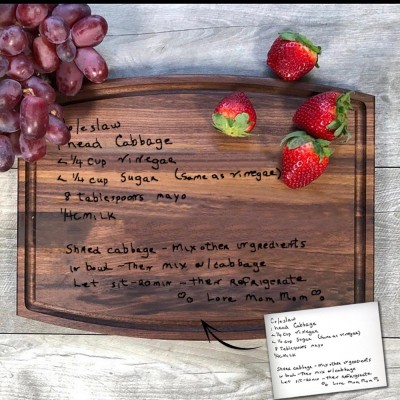 Coleslaw
1 head Cabbage
~ 1/4 cup vinegar
~ 1/4 cup Sugar (same as vinegar)
8 tablespoons mayo
1/4c milk
Shred cabbage - mix other ingredients
in bowl - Then mix w/cabbage
Let sit - 20 min - then Refrigerate
Love Mom Mom
Coleslaw
1 head Cabbage
~ 1/4 cup vinegar
~ 1/4 cup Sugar (same as vinegar)
8 tablespoons mayo
1/4c milk
Shred cabbage - mix other ingredients
in bowl - Then mix w/cabbage
Let sit - 20 min - then Refrigerate
Love Mom Mom